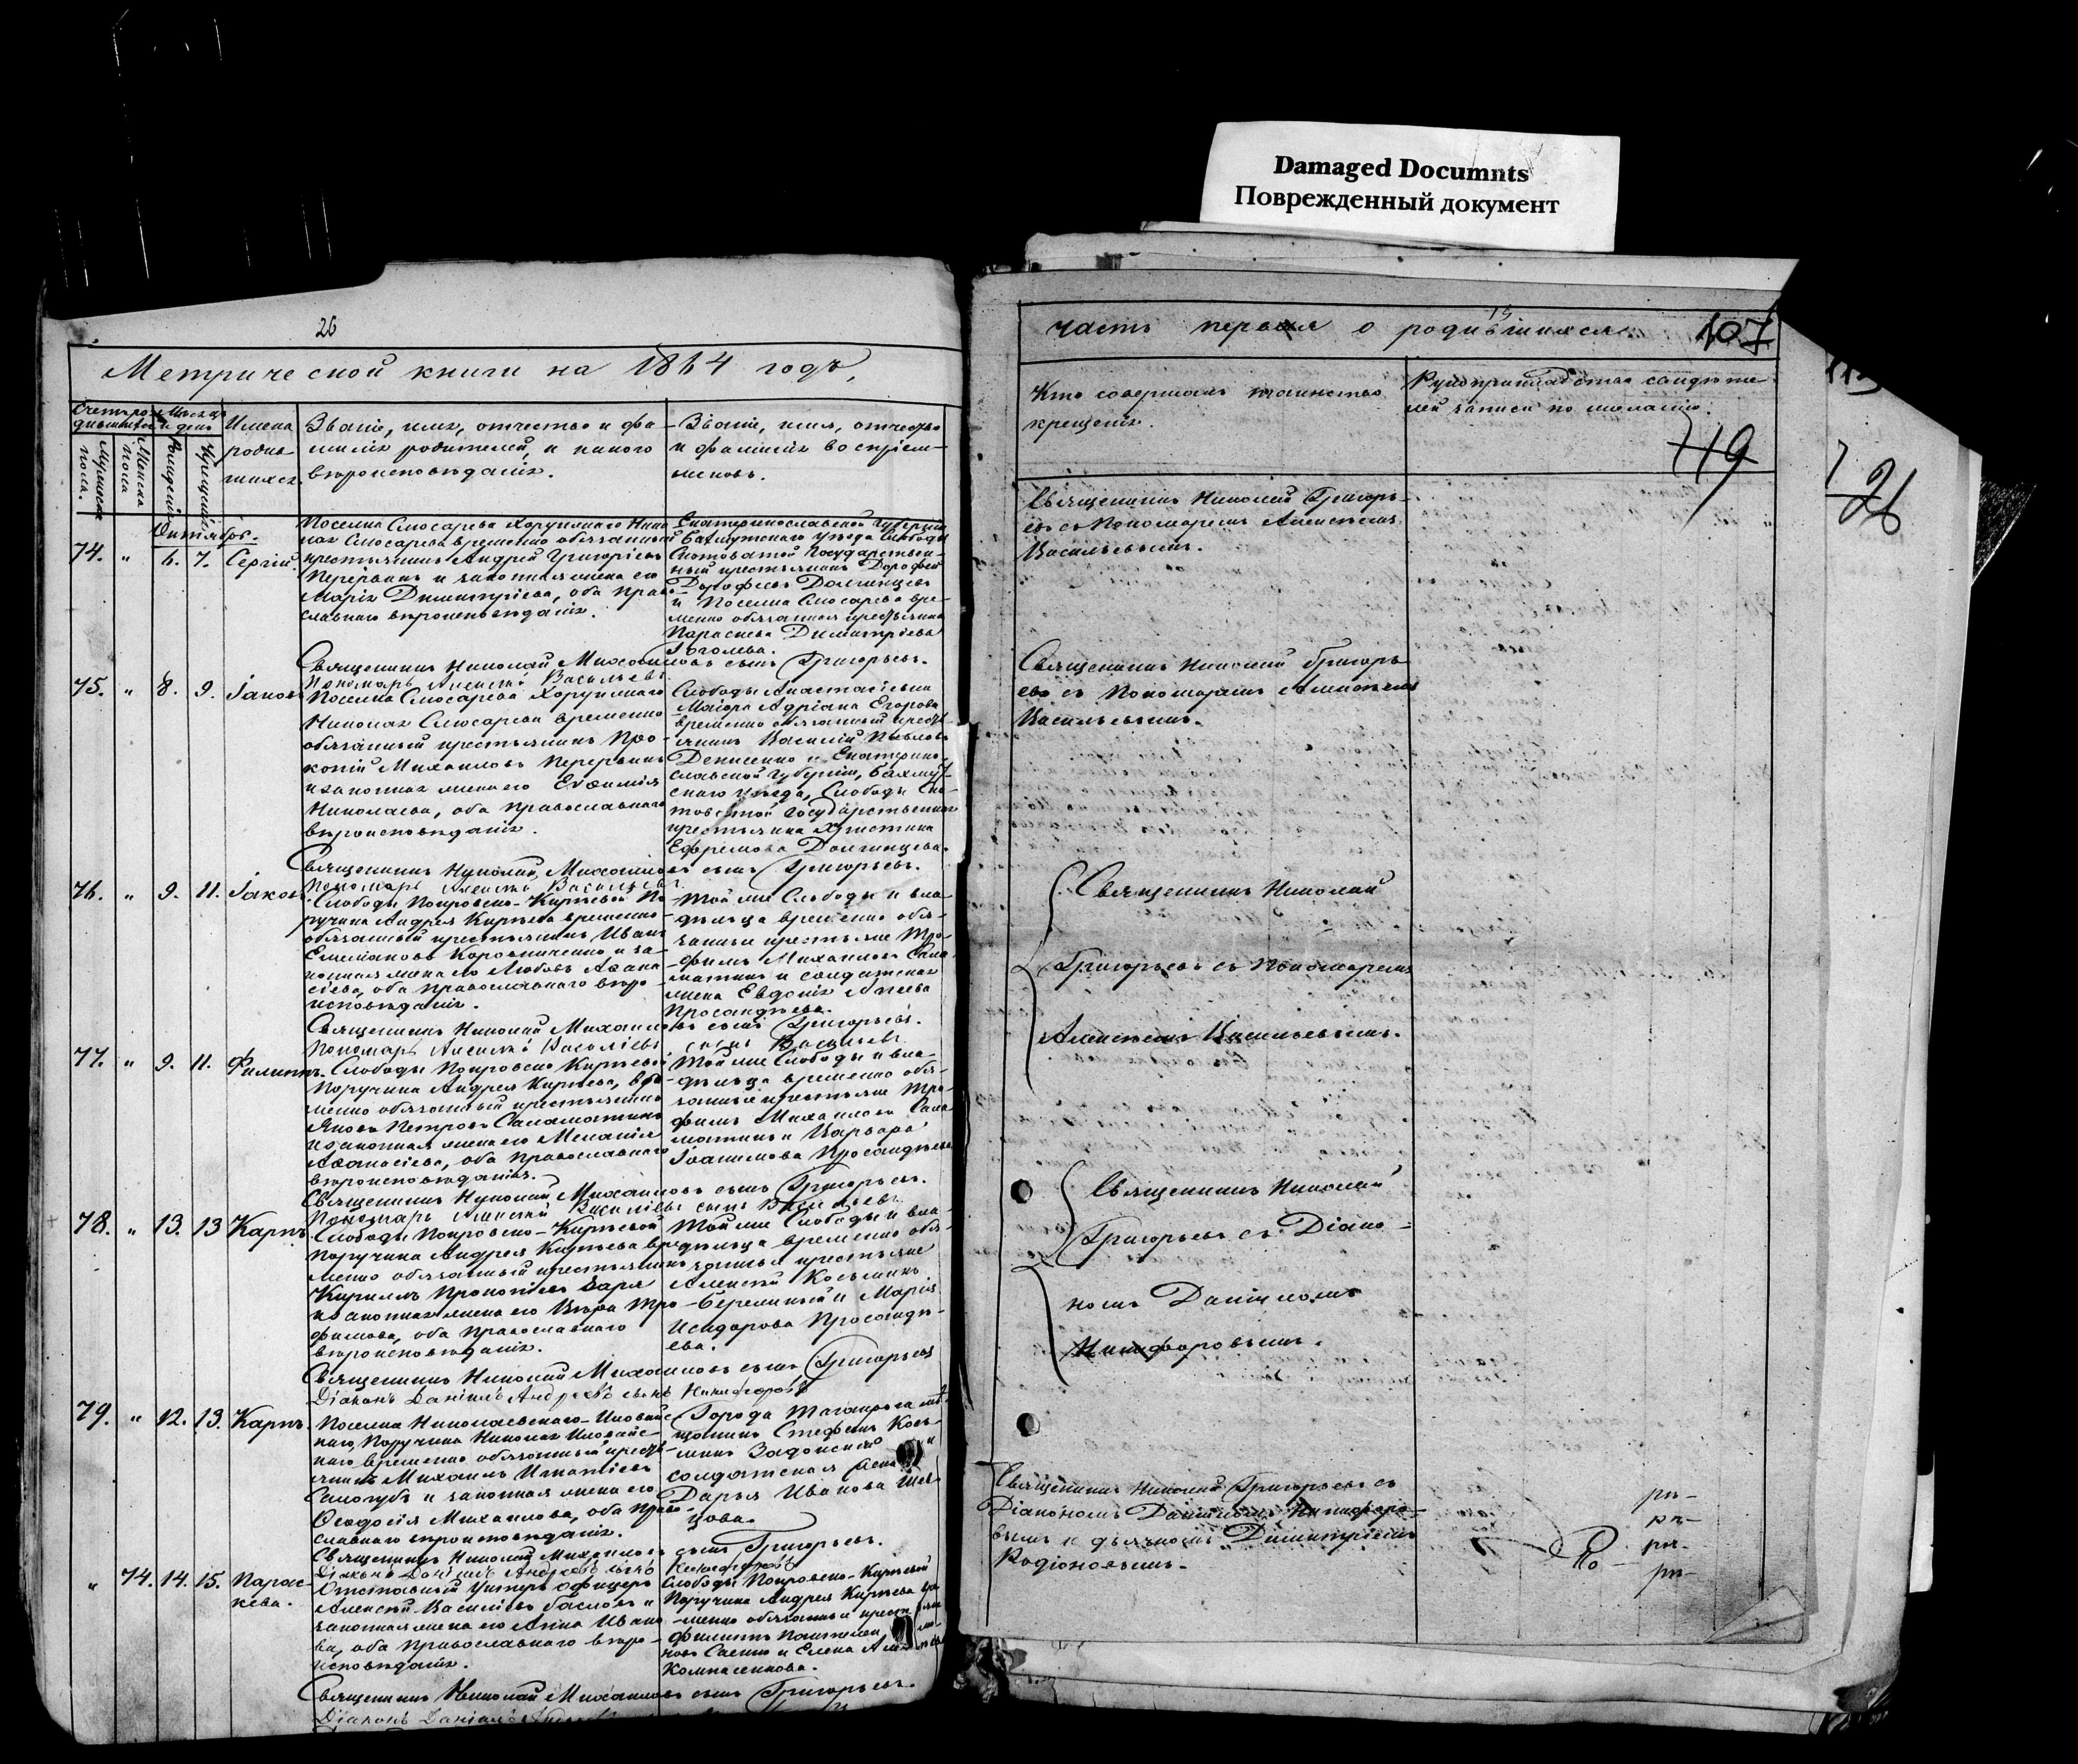 Damaged Documnts
Поврежденный документ
26
Метрической книги на 1864 годъ,
Счетъ ро- Мѣсяцъ
дившихся и день
Мужеска пола.
Женска пола
Рожденія
Крещенія
Имена
родив-
шихся.
Званіе, имя, отчество и фа-
милія родителей, и какого
вѣроисповѣданія.
Званіе, имя, отчество
и фамилія воспріем-
никовъ.
Октябрь.
74. " 6. 7. Сергій.
Поселка Слюсарева Хорунжаго Нико
лая Слюсарева временно обязанный
крестьянинъ Андрей Григоріевъ
Перервинъ и законная жена его
Марія Димитріева, оба право-
славнаго вѣроисповѣданія.
Екатеринославской Губерніи
Бахмутскаго уѣзда Слободы
Скотоватой Государствен-
ный крестьянинъ Дорофей
Дорофеевъ Долгинцевъ
и Поселка Слюсарева вре-
менно обязанная крестьянка
Параскева Димитріева
Гоголева.
Священникъ Николай Михаиловъ сынъ Григорьевъ.
Пономарь Алексѣй Васильевъ
75. " 8. 9. Іаковъ
Поселка Слюсарева Хорунжаго
Николая Слюсарева временно
обязанный крестьянинъ Про-
копій Михаиловъ Перервинъ
и законная жена его Евѳимія
Николаева, оба православнаго
вѣроисповѣданія.
Слободы Анастасіевки
Маіора Адріана Егорова
временно обязанный кресть-
янинъ Василій Павловъ
Денисенко и Екатерино-
славской Губерніи, Бахмут-
скаго уѣзда, Слободы Ско-
товатой Государственная
крестьянка Христина
Ефремова Долгинцева.
Священникъ Николай Михаиловъ сынъ Григорьевъ.
Пономарь Алексѣй Васильевъ
76. " 9. 11. Іаковъ
Слободы Покровско-Кирѣевой По
ручика Андрея Кирѣева временно-
обязанный крестьянинъ Иванъ
Емельяновъ Коровниченко и за-
конная жена его Любовь Аѳана
сіева, оба православнаго вѣро-
исповѣданія.
Той же Слободы и вла-
дѣльца временно обя-
занные крестьяне Тро-
фимъ Михаиловъ Сала-
матинъ и солдатская
жена Евдокія Алѣева
Просандѣева.
Священникъ Николай Михаиловъ сынъ Григорьевъ.
Пономарь Алексѣй Василіевъ сынъ Васильевъ
77. " 9. 11. Филиппъ.
Слободы Покровско Кирѣевой
Поручика Андрея Кирѣева, вре-
менно обязанный крестьянинъ
Яковъ Петровъ Саламатинъ
и законная жена его Меланія
Аѳанасіева, оба православнаго
вѣроисповѣданія.
Той же Слободы и вла-
дѣльца временно обя-
занные крестьяне Тро-
фимъ Михаиловъ Сала-
матинъ и Варвара
Іоакимова Просандѣева
Священникъ Николай Михаиловъ сынъ Григорьевъ.
Пономарь Алексѣй Василіевъ сынъ Васильевъ
78. " 13. 13 Карпъ.
Слободы Покровско-Кирѣевой
Поручика Андрея Кирѣева вре-
менно обязанный крестьянинъ
Кириллъ Прокопіевъ Заря
и законная жена его Вѣра Тро-
фимова, оба православнаго
вѣроисповѣданія.
Той же Слободы и вла-
дѣльца временно обя-
занные крестьяне
Алексѣй Косьминъ
Бережный и Марія
Исидорова Просандѣ-
ева.
Священникъ Николай Михаиловъ сынъ Григорьевъ
Діаконъ Даніилъ Андреевъ сынъ Никифоровъ
79. " 12. 13. Карпъ.
Поселка Николаевскаго-Иловайс-
каго, Поручика Николая Иловайс-
каго временно обязанный кресть-
янинъ Михаилъ Игнатіевъ
Самогубъ и законная жена его
Ѳеодосія Михаилова, оба право-
славнаго вѣроисповѣданія.
Города Таганрога мѣ-
щанинъ Стефанъ Косъ-
минъ Задонскій и
солдатская жена
Дарья Иванова Шев-
цова.
Священникъ Николай Михаиловъ сынъ Григорьевъ.
Діаконъ Даніилъ Андреевъ сынъ Никифоровъ
" 74. 14. 15. Парас-
кева.
Отставный Унтеръ офицеръ
Алексѣй Василіевъ Басловъ и
законная жена его Анна Ивано
ва, оба православнаго вѣро-
исповѣданія.
Слободы Покровско-Кирѣевой
Поручика Андрея Кирѣева вре
менно обязанные крестьяне
Филиппъ
Саенко и Елена
Компасенкова.
Священникъ Николай Михаиловъ сынъ Григорьевъ.
Діаконъ Даніилъ
часть первая о родившихся
107
Кто совершалъ таинство
крещенія.
Рукоприкладство свидѣте
лей записи по желанію.
119
26
Священникъ Николай Григорь-
евъ съ Пономаремъ Алексѣемъ
Васильевымъ.
Священникъ Николай Григорь
евъ съ Пономаремъ Алексѣемъ
Васильевымъ.
Священникъ Николай
Григорьевъ съ Пономаремъ
Алексѣемъ Васильевымъ.
Священникъ Николай
Григорьевъ съ Діако-
номъ Даніиломъ
Никифоровымъ.
Священникъ Николай Григорьевъ съ
Діакономъ Даніиломъ Никифоро-
вымъ и дьячкомъ Димитріемъ
Родіоновымъ.